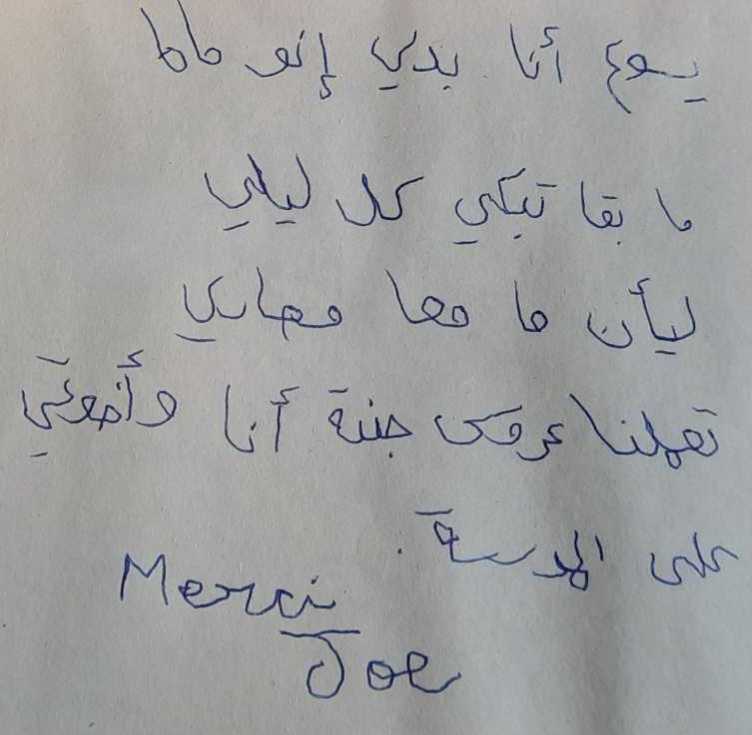 يسوع أنا بدي إنو ماما
ما بقا تبكي كل ليلي
ليأن ما معا مصاري
تعملنا عروس جبنة أنا وأخوتي
على المدرسة.
Merci
Joe